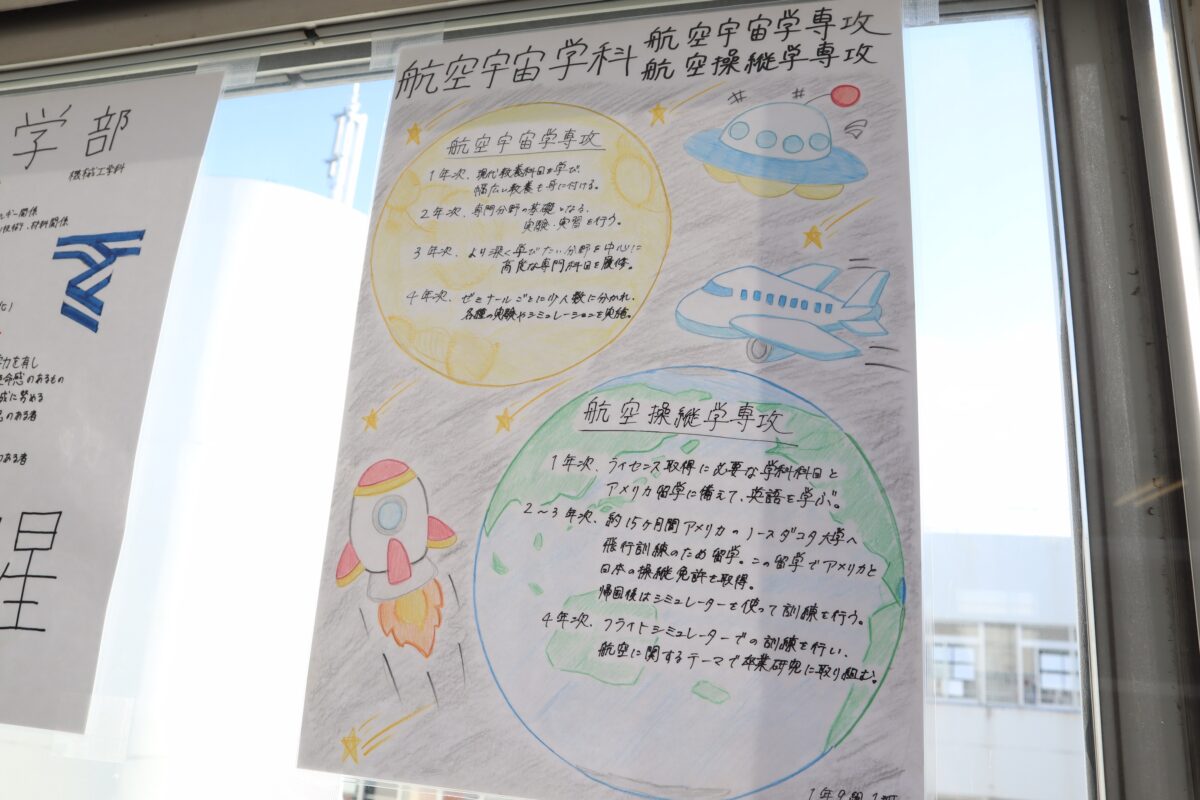 学部
機械工学科
ルギー関係
材料関係
力を有し
使命感のあるもの
成に努める
のある者
のある者
星
航空宇宙学科
航空宇宙学専攻
航空操縦学専攻
航空宇宙学専攻
1年次、現代教養科目を学び、
幅広い教養を身に付ける。
2年次、専門分野の基礎となる、
実験・実習を行う。
3年次、より深く学びたい分野を中心に
高度な専門科目を履修。
4年次、ゼミナールごとに少人数に分かれ、
各種の実験やシミュレーションを実施。
航空操縦学専攻
1年次、ライセンス取得に必要な学科科目と
アメリカ留学に備えて、英語を学ぶ。
2～3年次、約15ヶ月間アメリカのノースダコタ大学へ
飛行訓練のため留学。この留学でアメリカと
日本の操縦免許を取得。
帰国後はシミュレーターを使って訓練を行う。
4年次、フライトシミュレーターでの訓練を行い、
航空に関するテーマで卒業研究に取り組む。
1年9組